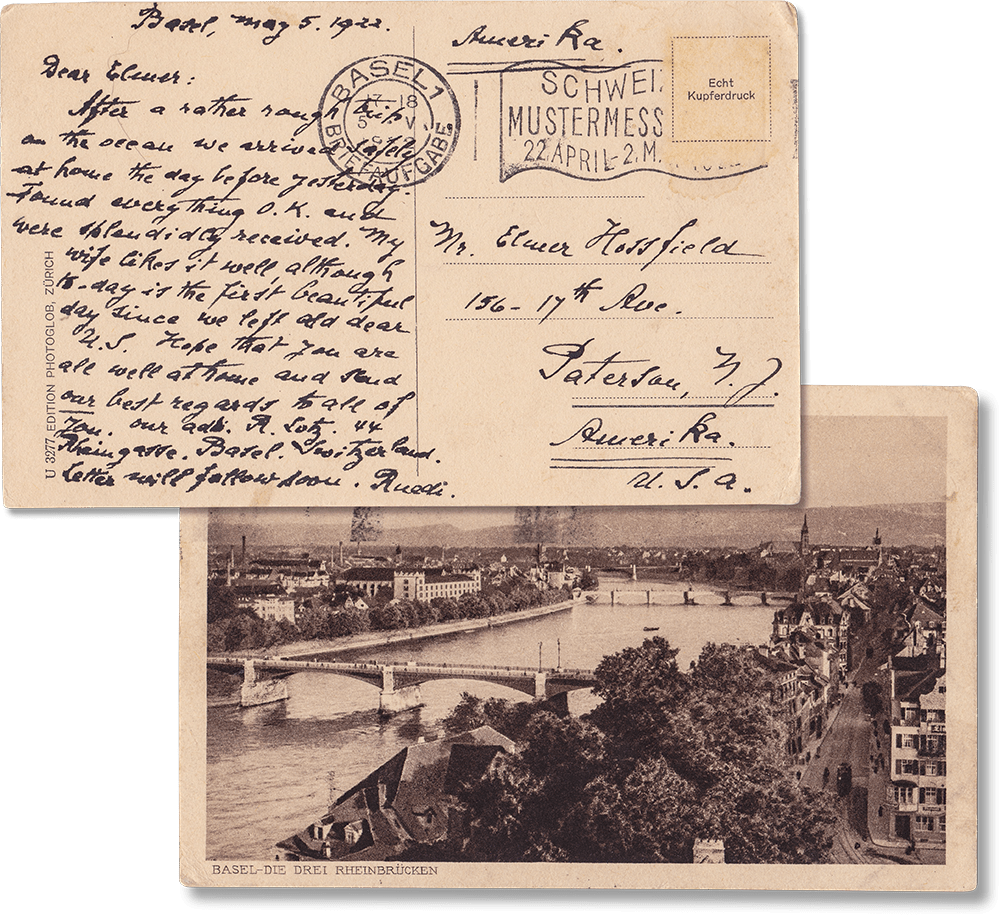 Basel, may 5. 1922.
Dear Elmer:
After a rather rough trip
on the ocean we arrived safely
at home the day before yesterday.
Found everything O.K. and
were splendidly received. My
wife likes it well, although
to-day is the first beautiful
day since we left old dear
U.S. Hope that you are
all well at home and send
our best regards to all of
you. our adr. R. Lotz. 44
Rheingasse. Basel. Switzerland.
Letter will follow soon. Ruedi.
U 3277 EDITION PHOTOGLOB, ZÜRICH
Amerika.
BASEL 1
17-18
BRIEFAUFGABE
SCHWEIZ
MUSTERMESS
22. APRIL - 2. M
Echt
Kupferdruck
Mr. Elmer Hossfield
156 - 17th Ave.
Paterson, N.J.
Amerika.
U.S.a.
BASEL-DIE DREI RHEINBRÜCKEN